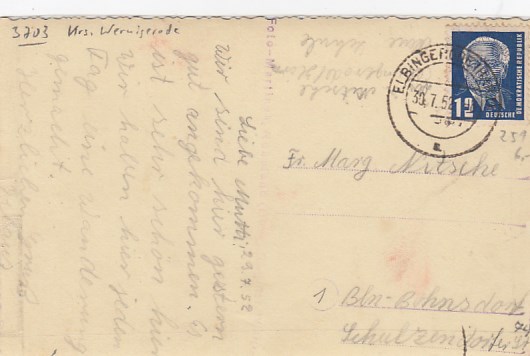 3703 Krs. Wernigerode
Liebe Mutti! 29.7.52
Wir sind hier gestern
gut angekommen. Es
ist sehr schön hier
Wir haben hier jeden
Tag eine Wanderung
gemacht.
Herzlichen Gruß
Foto-
ELBINGERODE
30.7.52
12
DEUTSCHE
DEMOKRATISCHE REPUBLIK
Fr. Marg Nitsche
1 Bln-Bohnsdorf
Schulzendorfer